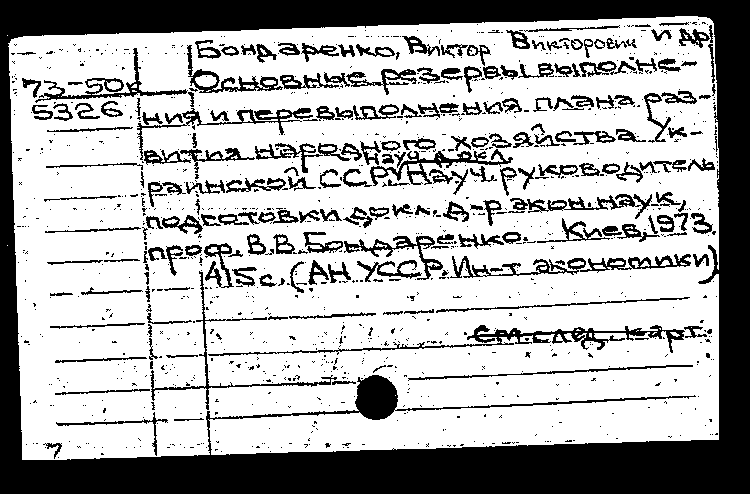 Бондаренко, Виктор Викторович и др.
73-50к Основные резервы выполне-
5326 ния и перевыполнения плана раз-
вития народного хозяйства Ук-
Науч. докл.
раинской ССР. Науч. руководитель
подготовки докл. д-р экон. наук,
проф. В.В. Бондаренко. Киев, 1973.
415 с. (АН УССР. Ин-т экономики)
см. след. карт.
7